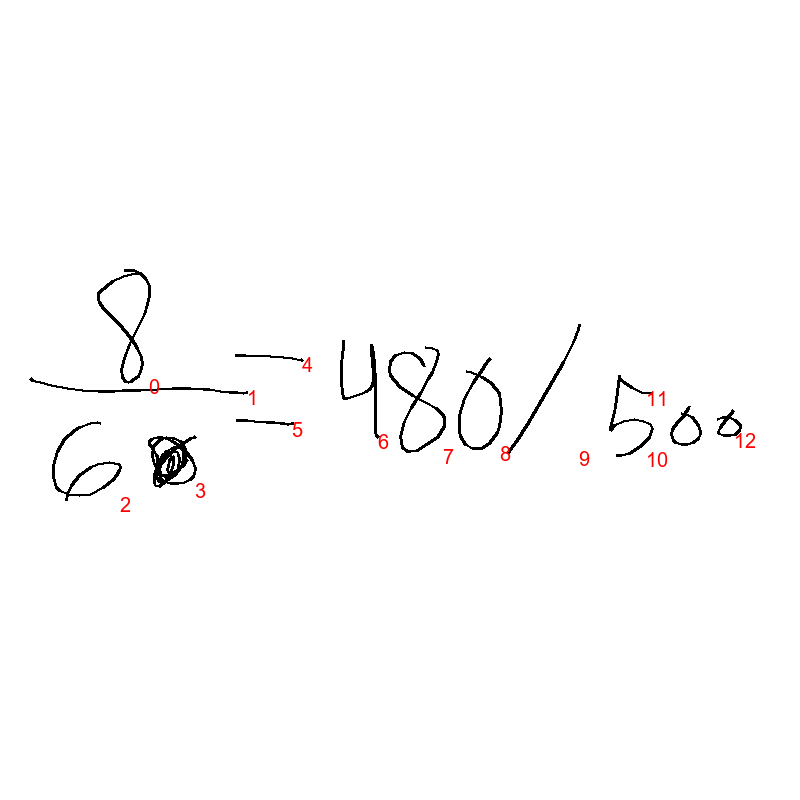 8
6 = 480/500
0 1 2 3 4 5 6 7 8 9 10 11 12